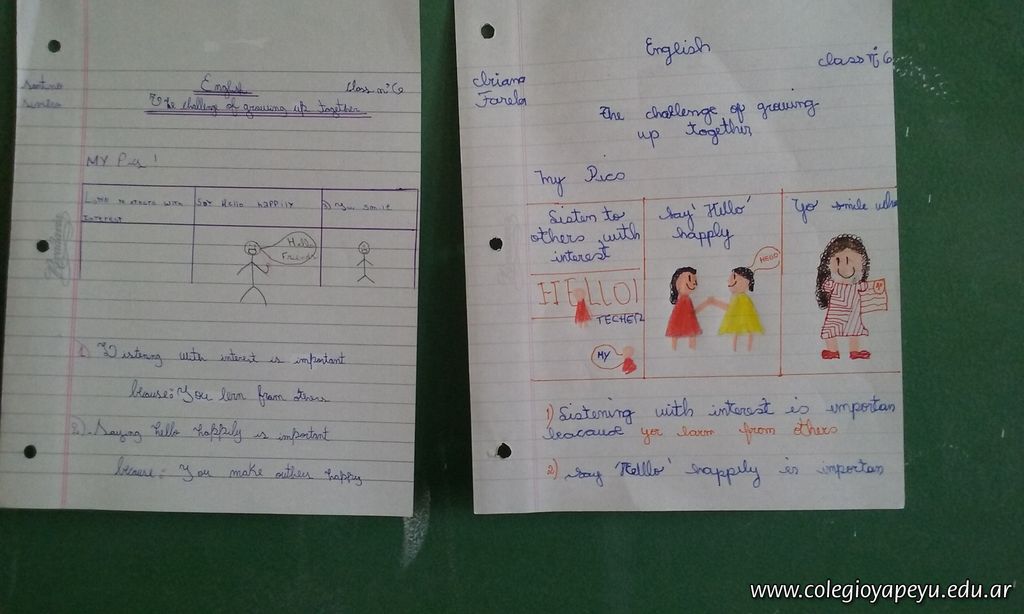 English
Class n° 6
The challenge of growing up together
MY Pics!
Listen to others with
Interest
Say Hello HAPPILY
smile
Hello
Friends
1) Listening with interest is important
because: You lern from others
2). Saying hello happily is important
because: You make others happy
English
class n° 6
Farela
The challenge of growing
up together
my Pics
Listen to
others with
interest
Say 'Hello'
happly
Yo smile whe
HELLO!
TECHER
MY
HELLO
1) Listening with interest is importan
beacause yor larn from others
2) Say 'Helllo' happily is importan
www.colegioyapeyu.edu.ar